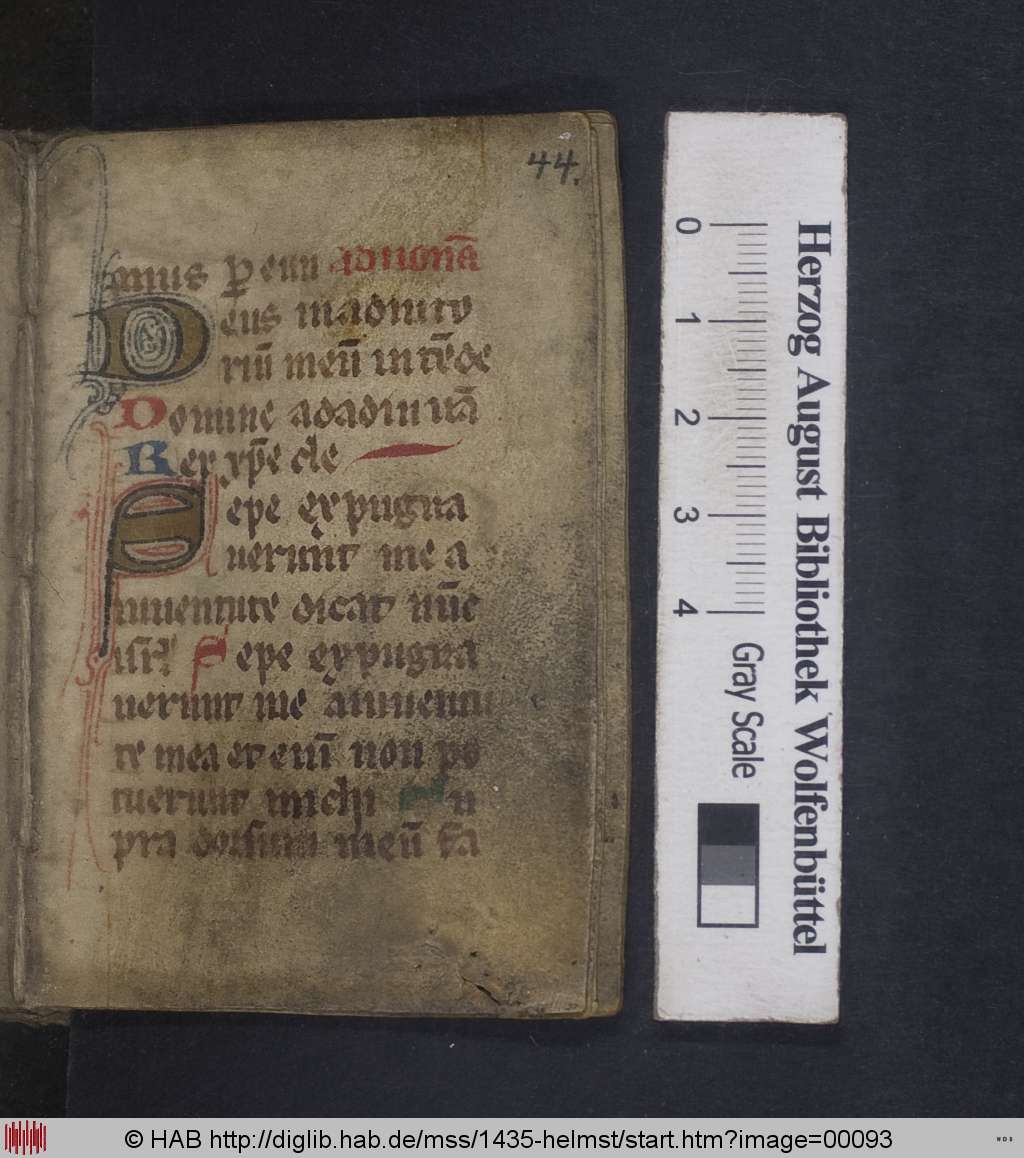 44.
mus ꝑ eun ad nonā
Deus in adiuto
riū meū intēde
Domine ad adiuuā
Rex xp̄e cle
Sepe expugna
uerunt me a
iuuentute dicat nūc
isrl̄ Sepe expugna
uerunt me a iuuentu
te mea et eni̅ non po
tuerunt michi Su
pra dorsum meū fa
0 1 2 3 4
Gray Scale
Herzog August Bibliothek Wolfenbüttel
© HAB http://diglib.hab.de/mss/1435-helmst/start.htm?image=00093